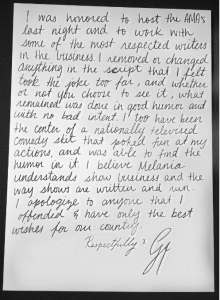 I was honored to host the AMAs
last night and to work with
some of the most respected writers
in the business. I removed or changed
anything in the script that I felt
took the joke too far, and whether
or not you choose to see it, what
remained was done in good humor and
with no bad intent. I too have been
the center of a nationally televised
comedy skit that poked fun at my
actions, and was able to find the
humor in it. I believe Melania
understands show business and the
way shows are written and run.
I apologize to anyone that I
offended & have only the best
wishes for our country.
Respectfully x